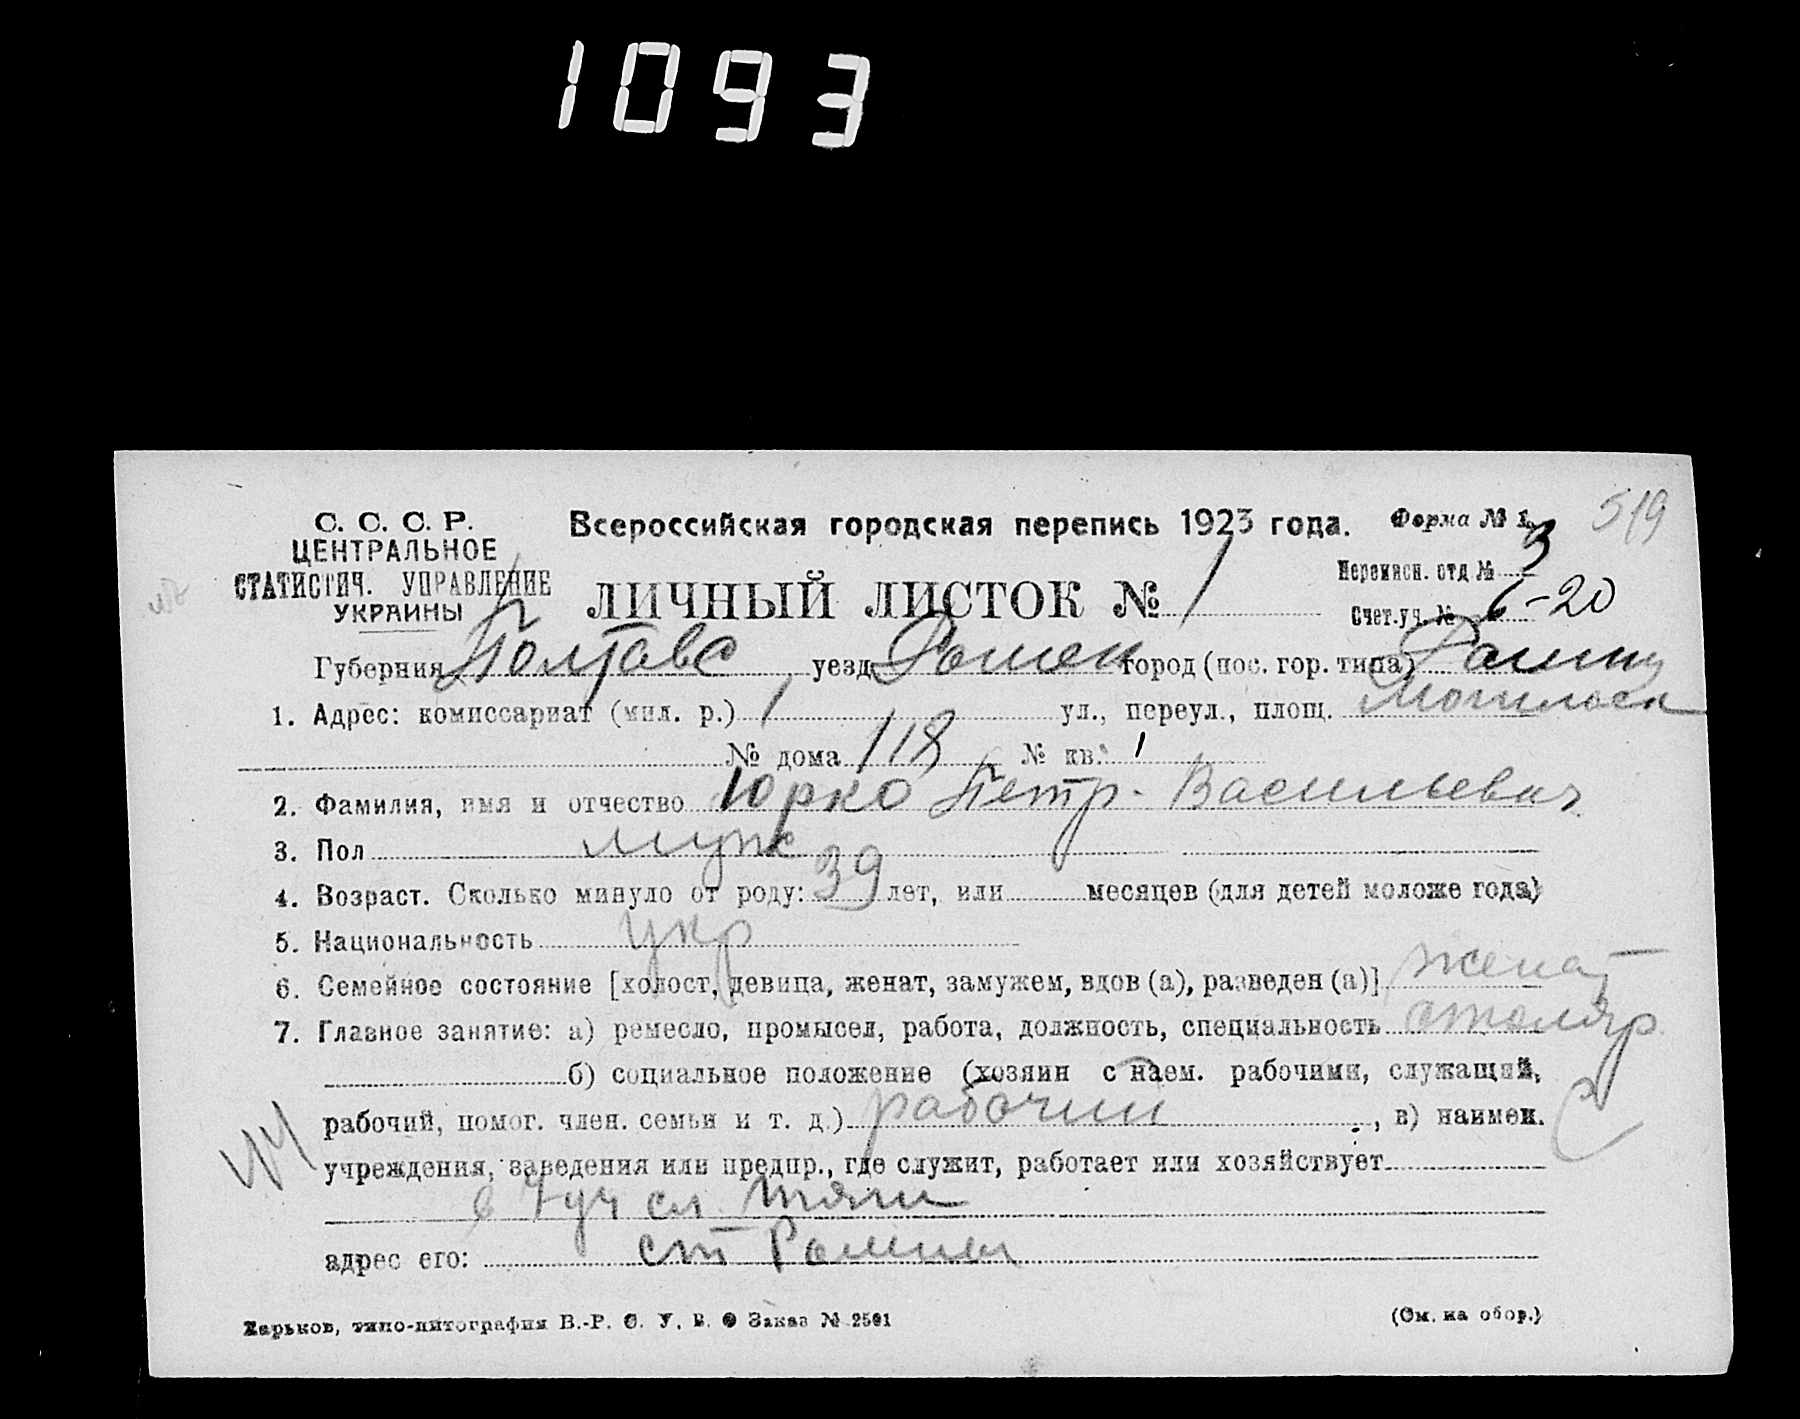 1093
С. С. С. Р.
ЦЕНТРАЛЬНОЕ
СТАТИСТИЧ. УПРАВЛЕНИЕ
УКРАИНЫ
Всероссийская городская перепись 1923 года.
Форма № 1.
519
ЛИЧНЫЙ ЛИСТОК № 1
Переписн. отд № 3
Счет. уч. № 6-20
Губерния Полтавс уезд Ромен город (пос. гор. типа) Ромны
1. Адрес: комиссариат (мил. р.) 1 ул., переул., площ.
№ дома 118 № кв. 1
2. Фамилия, имя и отчество Юрко Петр. Васильевич
3. Пол муж
4. Возраст. Сколько минуло от роду: 39 лет, или месяцев (для детей моложе года)
5. Национальность укр
6. Семейное состояние [холост, девица, женат, замужем, вдов (а), разведен (а)] женат
7. Главное занятие: а) ремесло, промысел, работа, должность, специальность столяр
б) социальное положение (хозяин с наем. рабочими, служащий,
рабочий, помог. член. семьи и т. д.) рабочий, в) наимен.
учреждения, заведения или предпр., где служит, работает или хозяйствует
в 7 уч сл. тяги
адрес его: ст Ромны
Харьков, типо-литография В.-Р. С. У. В. Заказ № 2501
(См. на обор.)